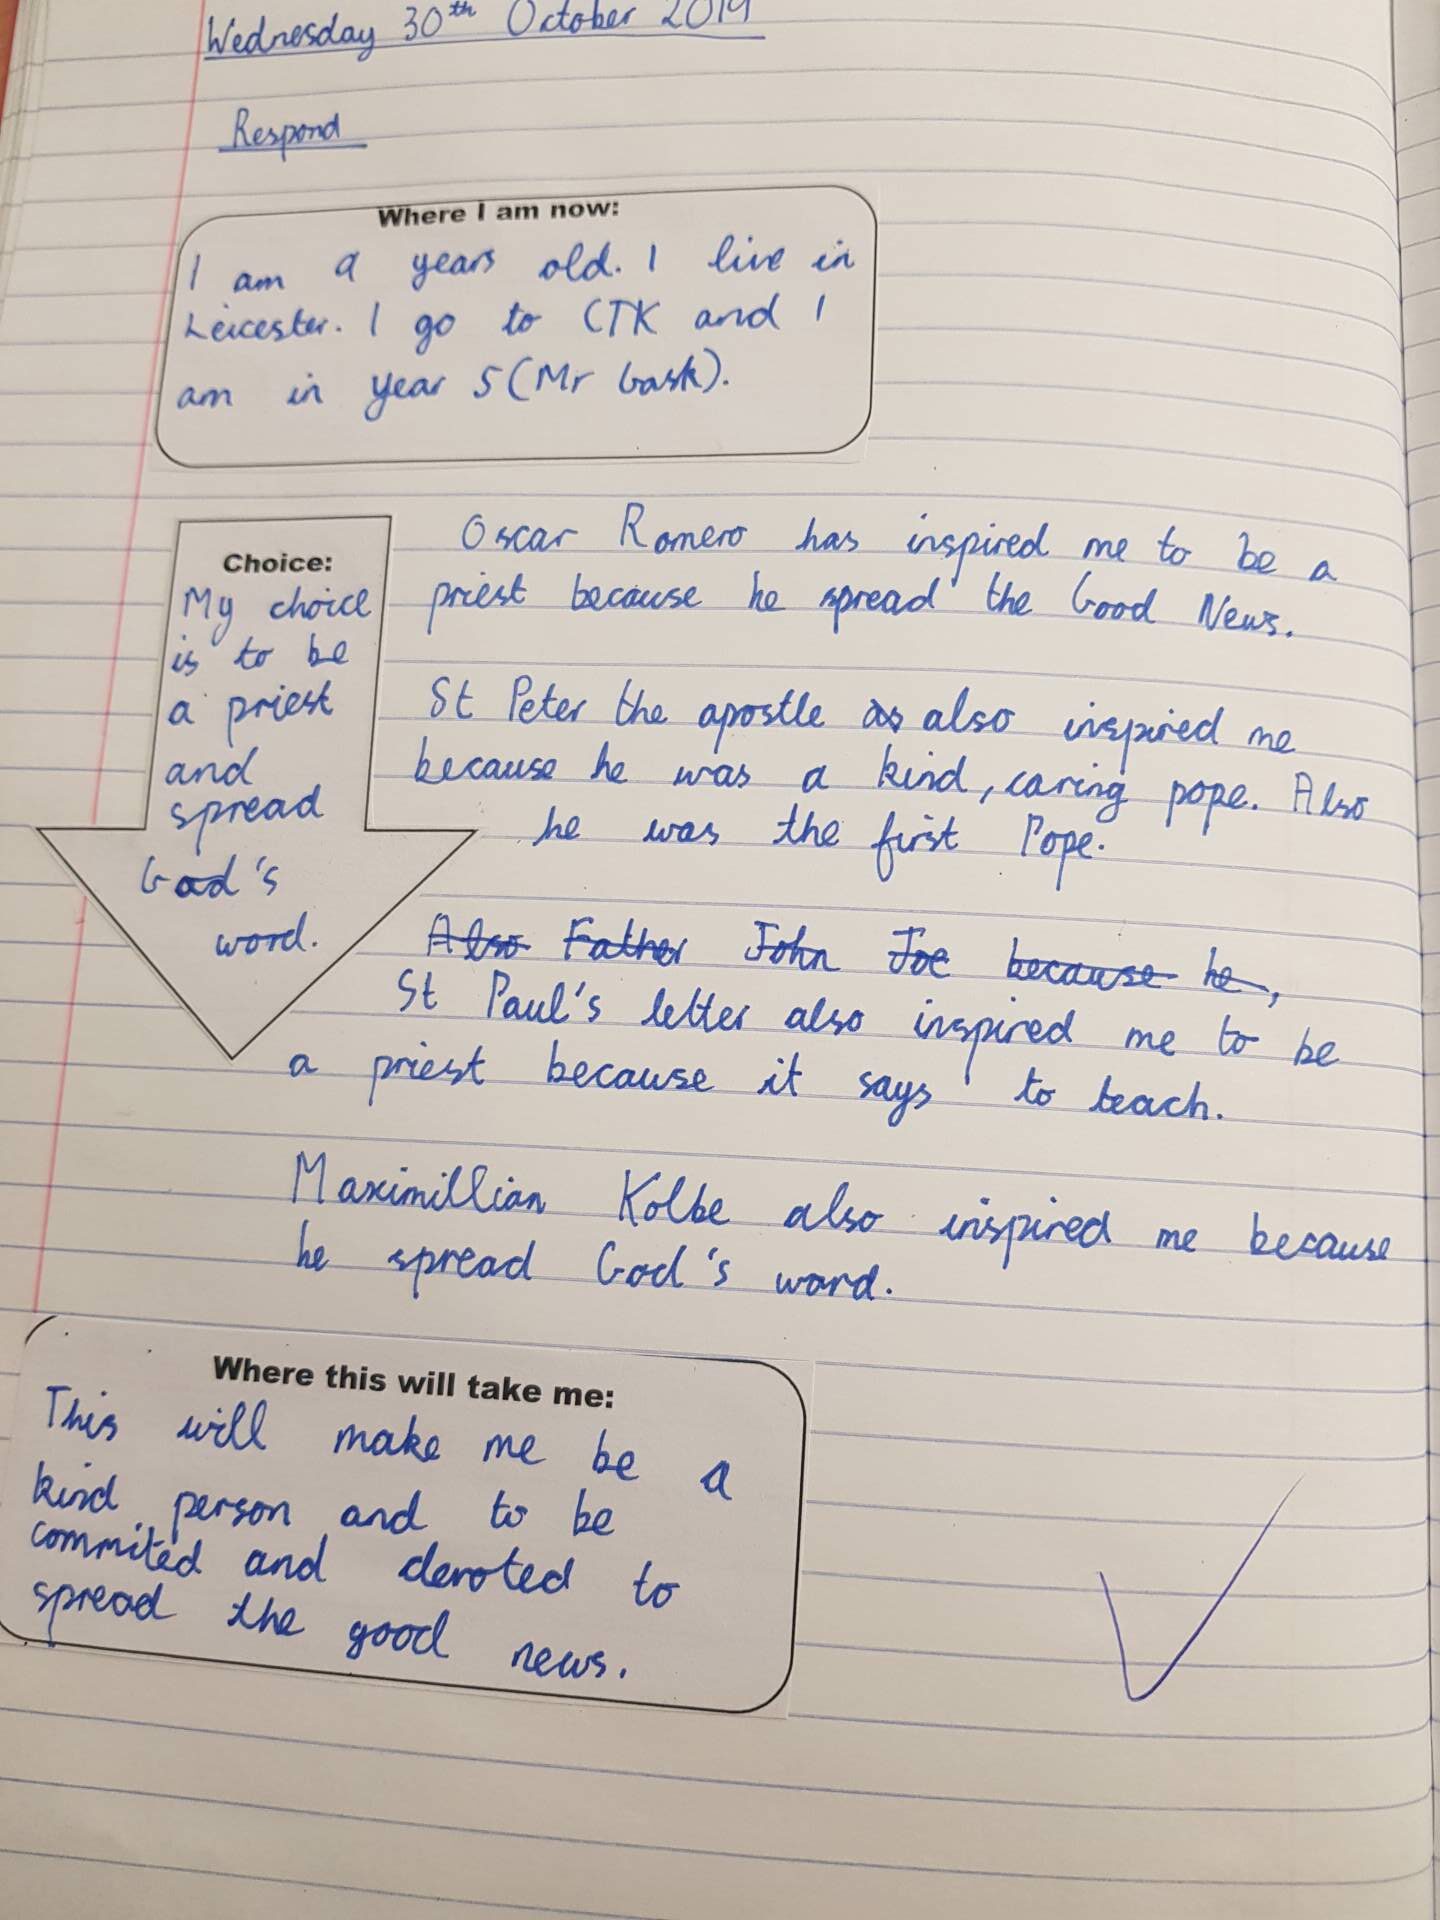 Wednesday 30th October 2019
Respond
Where I am now:
I am 9 years old. I live in
Leicester. I go to CTK and I
am in year 5 (Mr Gask).
Choice:
My choice
is to be
a priest
and
spread
God's
word.
Oscar Romero has inspired me to be a
priest because he spread the Good News.
St Peter the apostle as also inspired me
because he was a kind, caring pope. Also
he was the first Pope.
Also Father John Joe because he,
St Paul's letter also inspired me to be
a priest because it says to teach.
Maximillian Kolbe also inspired me because
he spread God's word.
Where this will take me:
This will make me be a
kind person and to be
commited and devoted to
spread the good news.